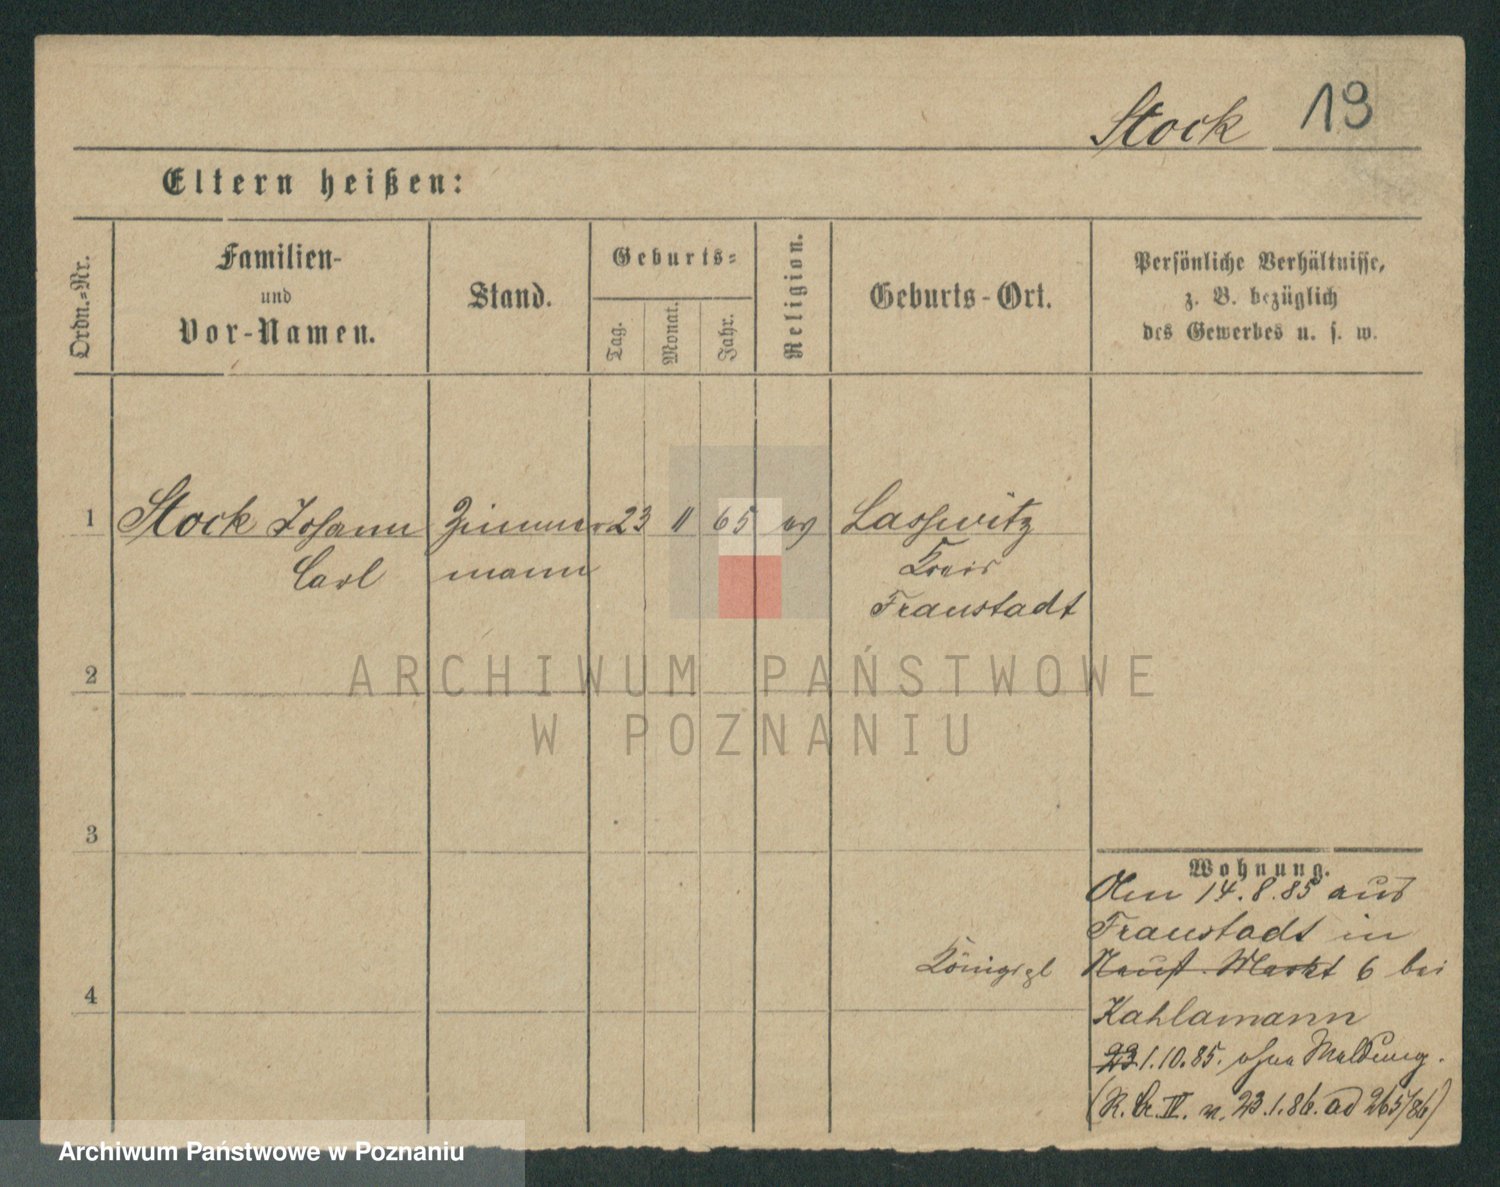 Stock 19
Eltern heißen:
Ordn.-Nr.
Familien-
und
Vor-Namen.
Stand.
Geburts-
Tag.
Monat.
Jahr.
Religion.
Geburts-Ort.
Persönliche Verhältnisse,
z. B. bezüglich
des Gewerbes u. s. w.
1 Stock Johann Zimmer 23 11 65 ev Lasswitz
Carl mann Kreis
Fraustadt
2
ARCHIWUM PAŃSTWOWE
W POZNANIU
3
Wohnung.
Den 14.8.85 aus
Fraustadt in
Königspl Neust. Markt 6 bei
4
Kahlamann
23 1.10.85. ohne Meldung.
(R. Br. IV. v. 23.1.86. ad 265/86)
Archiwum Państwowe w Poznaniu